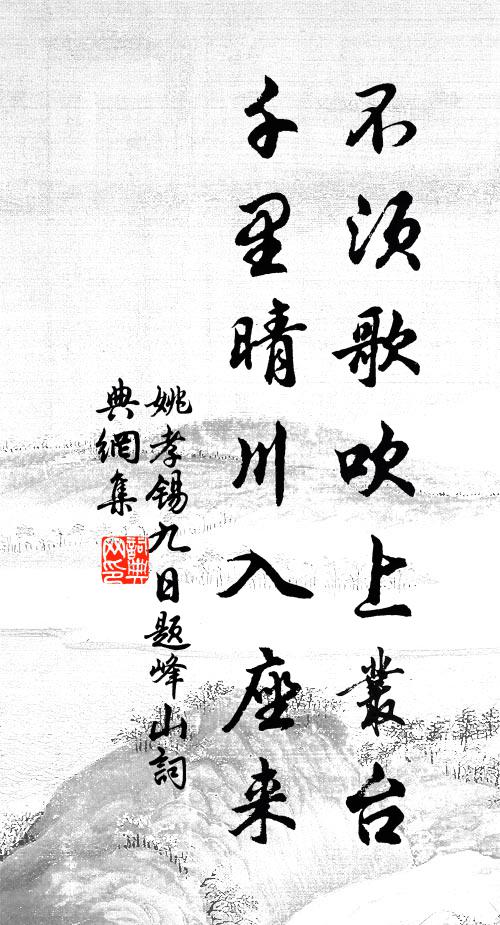 不须歌吹上叢台
千里晴川入座来
姚孝锡九日题峰山詞
典網集
詞典网印